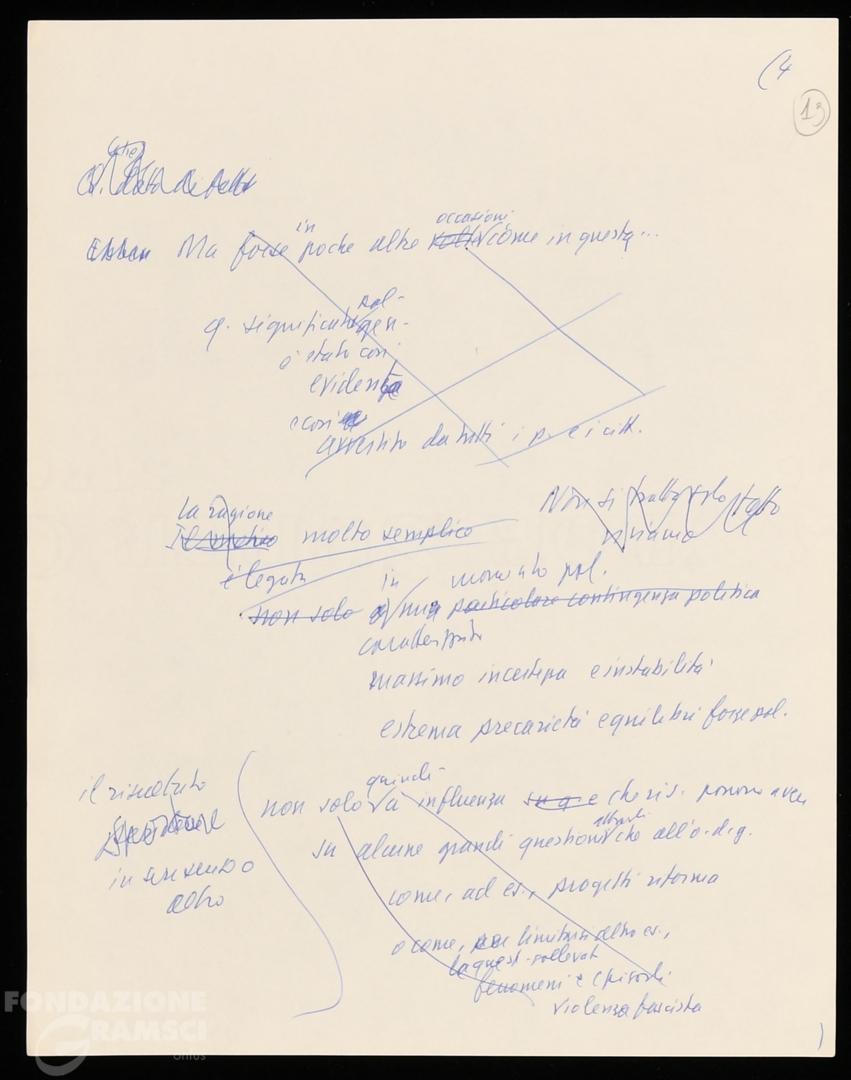 (4
13
Ma forse in poche altre occasioni come in questa...
q. significato pol-
gen-
è stato così
evidente
e così
avvertito da tutti i p. e i citt.
la ragione
molto semplice
Non si tratta solo
è legata
in momento pol.
non solo una particolare contingenza politica
massima incertezza e instabilità
estrema precarietà equilibri forze pol.
il risultato
quindi
non solo influenza su q. e che ris. possono avere
su alcune grandi questioni attuali che all'o.d.g.
in un senso o
altro
come, ad es., progetti riforma
o come, altro es.,
la quest. sollevata
fenomeni e episodi
violenza fascista
FONDAZIONE
GRAMSCI
onlus